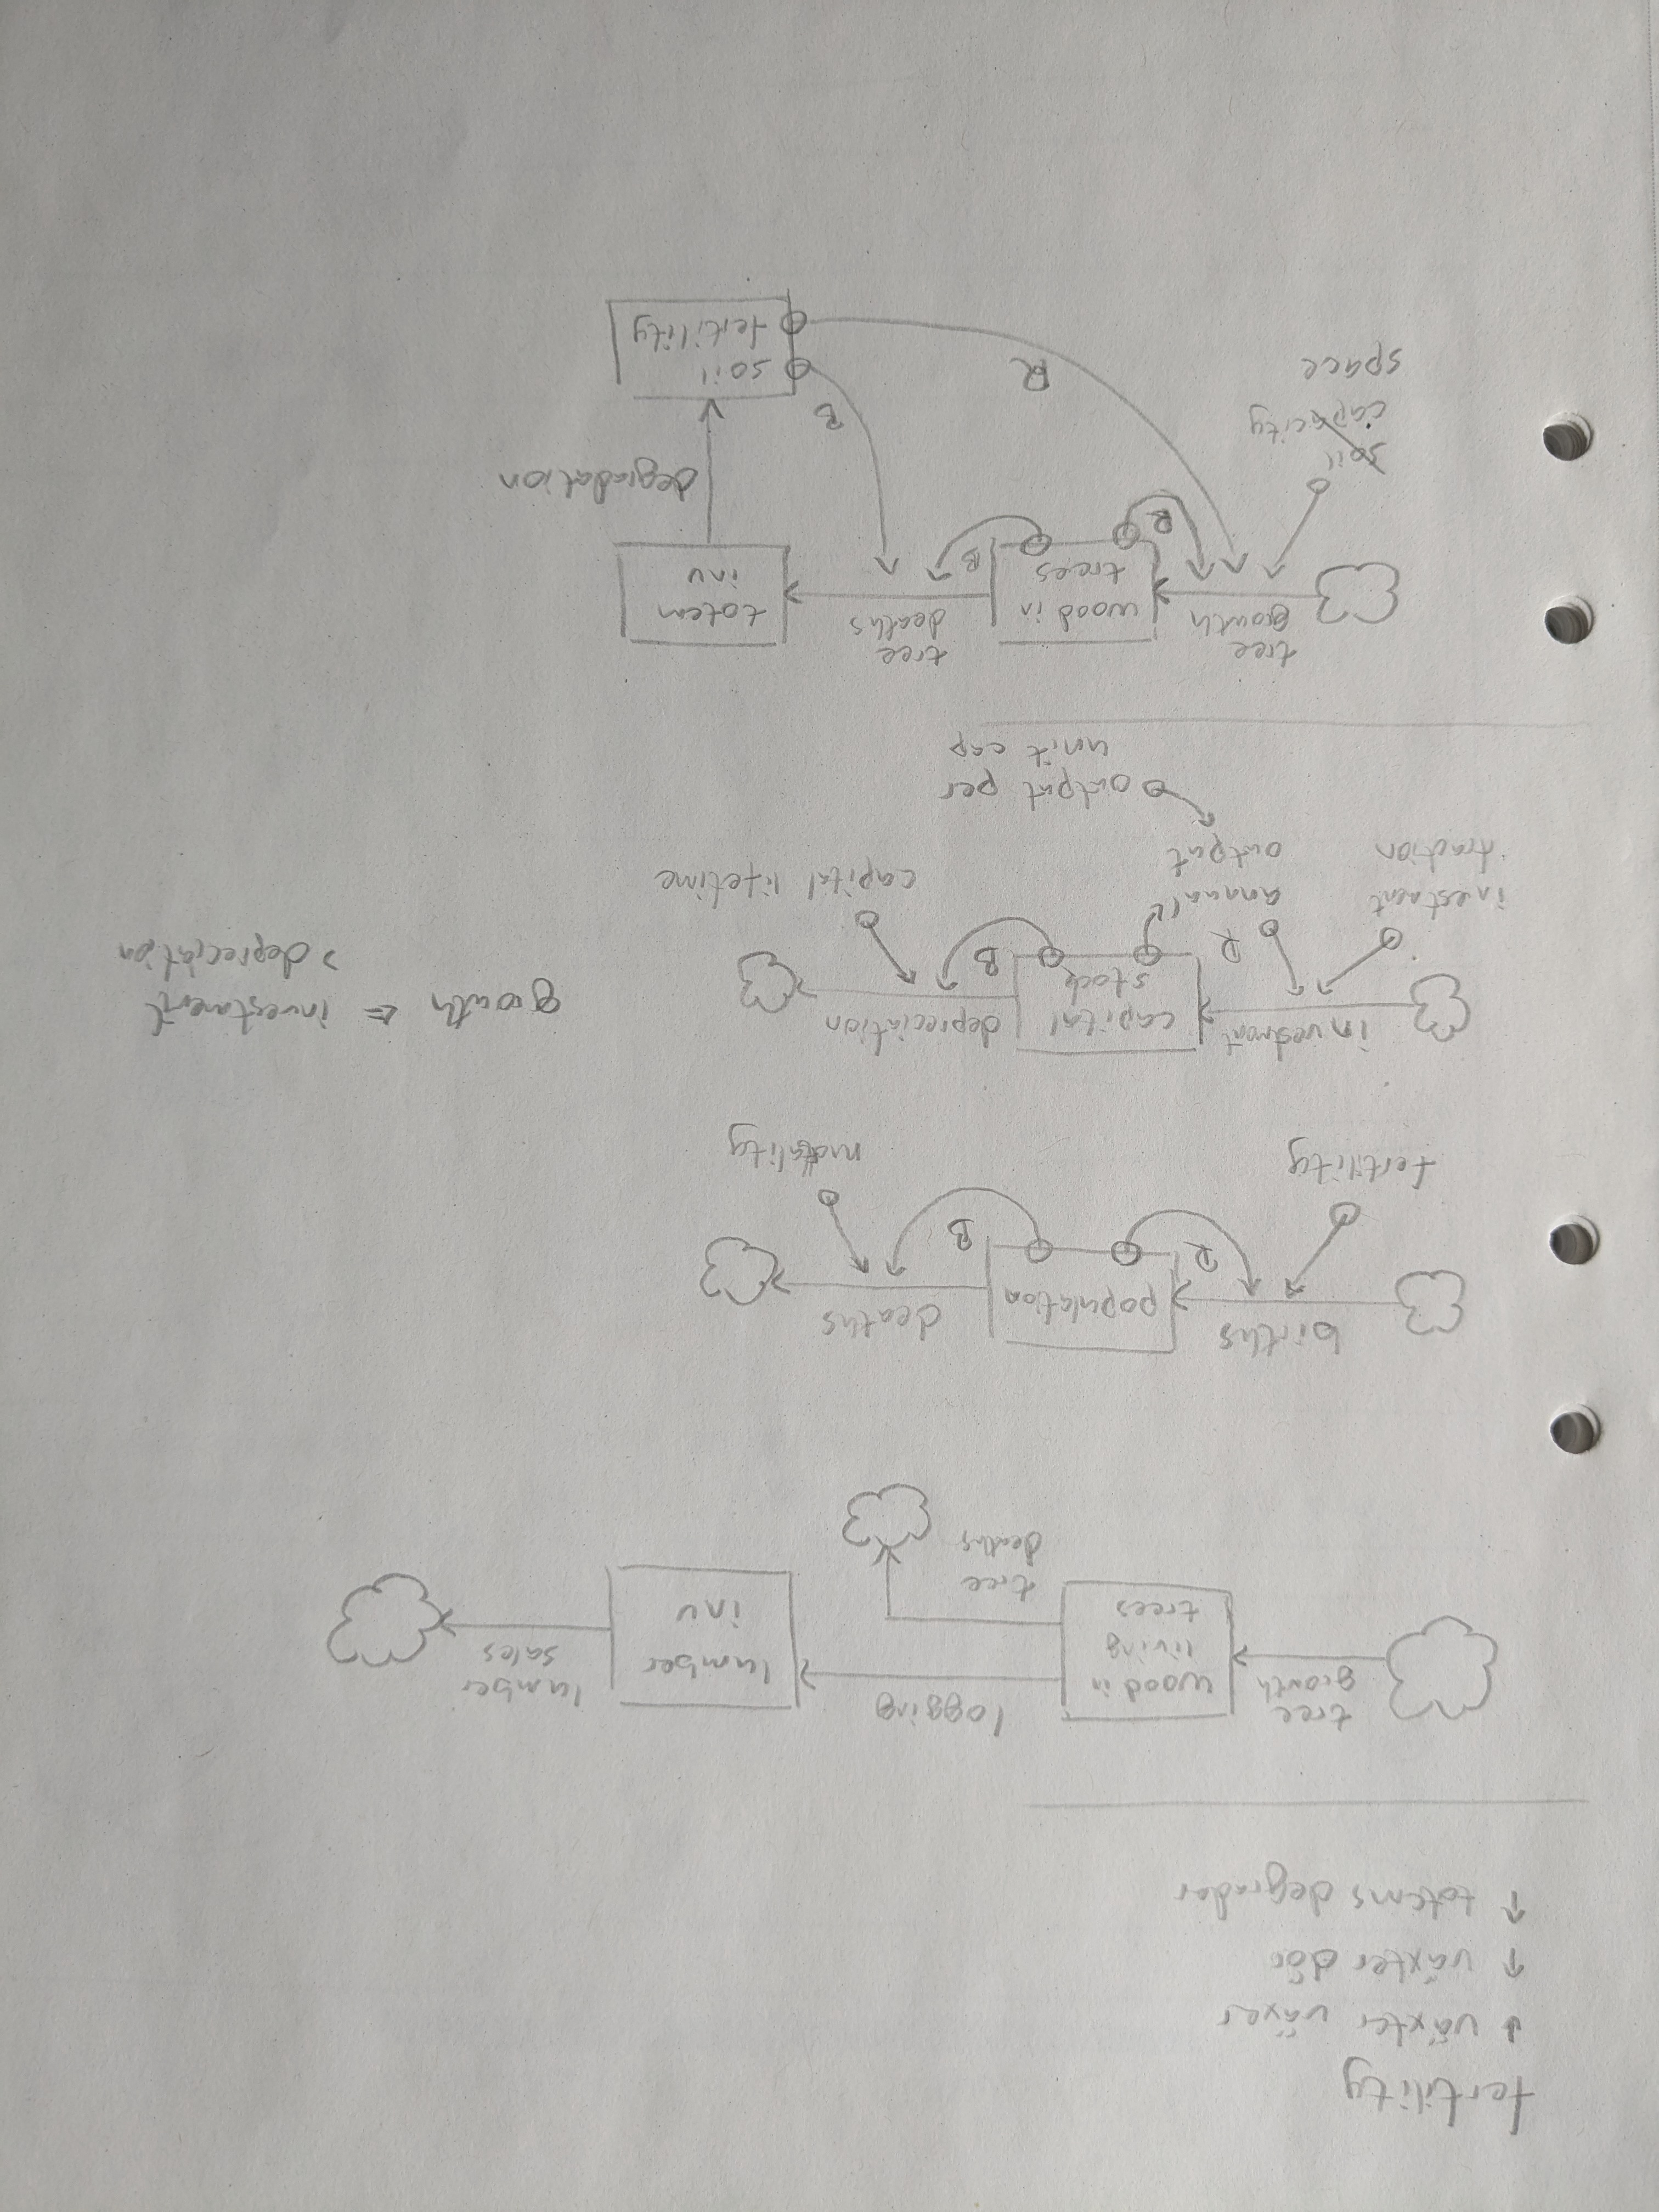 fertility
↓ växter växer
↑ växter dör
↑ totems degradar
tree
growth
wood in
living
trees
logging
tree
deaths
lumber
inv
lumber
sales
births
population
deaths
R
B
fertility
mortality
investment
capital
stock
depreciation
R
B
investment
fraction
annual
output
capital lifetime
output per
unit cap
growth ⇐ investment
> depreciation
tree
growth
wood in
trees
tree
deaths
totem
inv
R
B
degradation
soil
capacity
space
B
R
soil
fertility